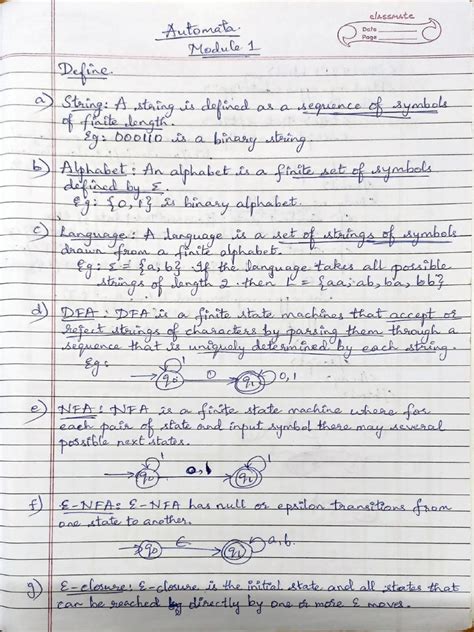 classmate
Date
Page
Automata.
Module 1
Define.
a) String: A string is defined as a sequence of symbols
of finite length.
Eg: 000110 is a binary string.
b) Alphabet: An alphabet is a finite set of symbols
defined by Σ.
Eg: {0,1} is binary alphabet.
c) Language: A language is a set of strings of symbols
drawn from a finite alphabet.
Eg: Σ = {a,b} If the language takes all possible
strings of length 2 then L = {aa, ab, ba, bb}
d) DFA: DFA is a finite state machines that accept or
reject strings of characters by parsing them through a
sequence that is uniquely determined by each string.
Eg:
1
q0 0 q1 0,1
e) NFA: NFA is a finite state machine where for
each pair of state and input symbol there may several
possible next states.
1 1
q0 0,1 q1
f) ε-NFA: ε-NFA has null or epsilon transitions from
one state to another.
q0 ε q1 a,b.
g) ε-closure: ε-closure is the initial state and all states that
can be reached by directly by one or more ε moves.